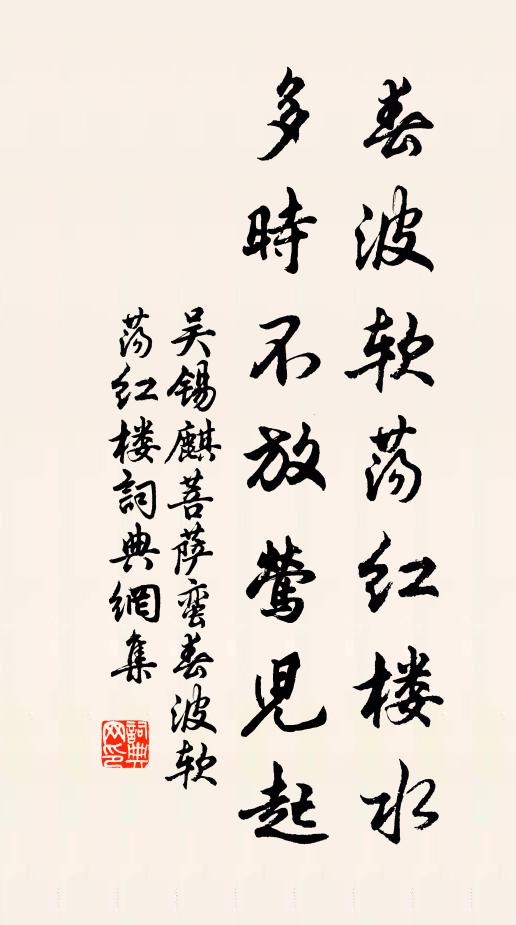 春波软荡红楼水
多時不放莺児起
吴锡麒菩萨蛮春波软
荡红楼詞典網集
詞典网印